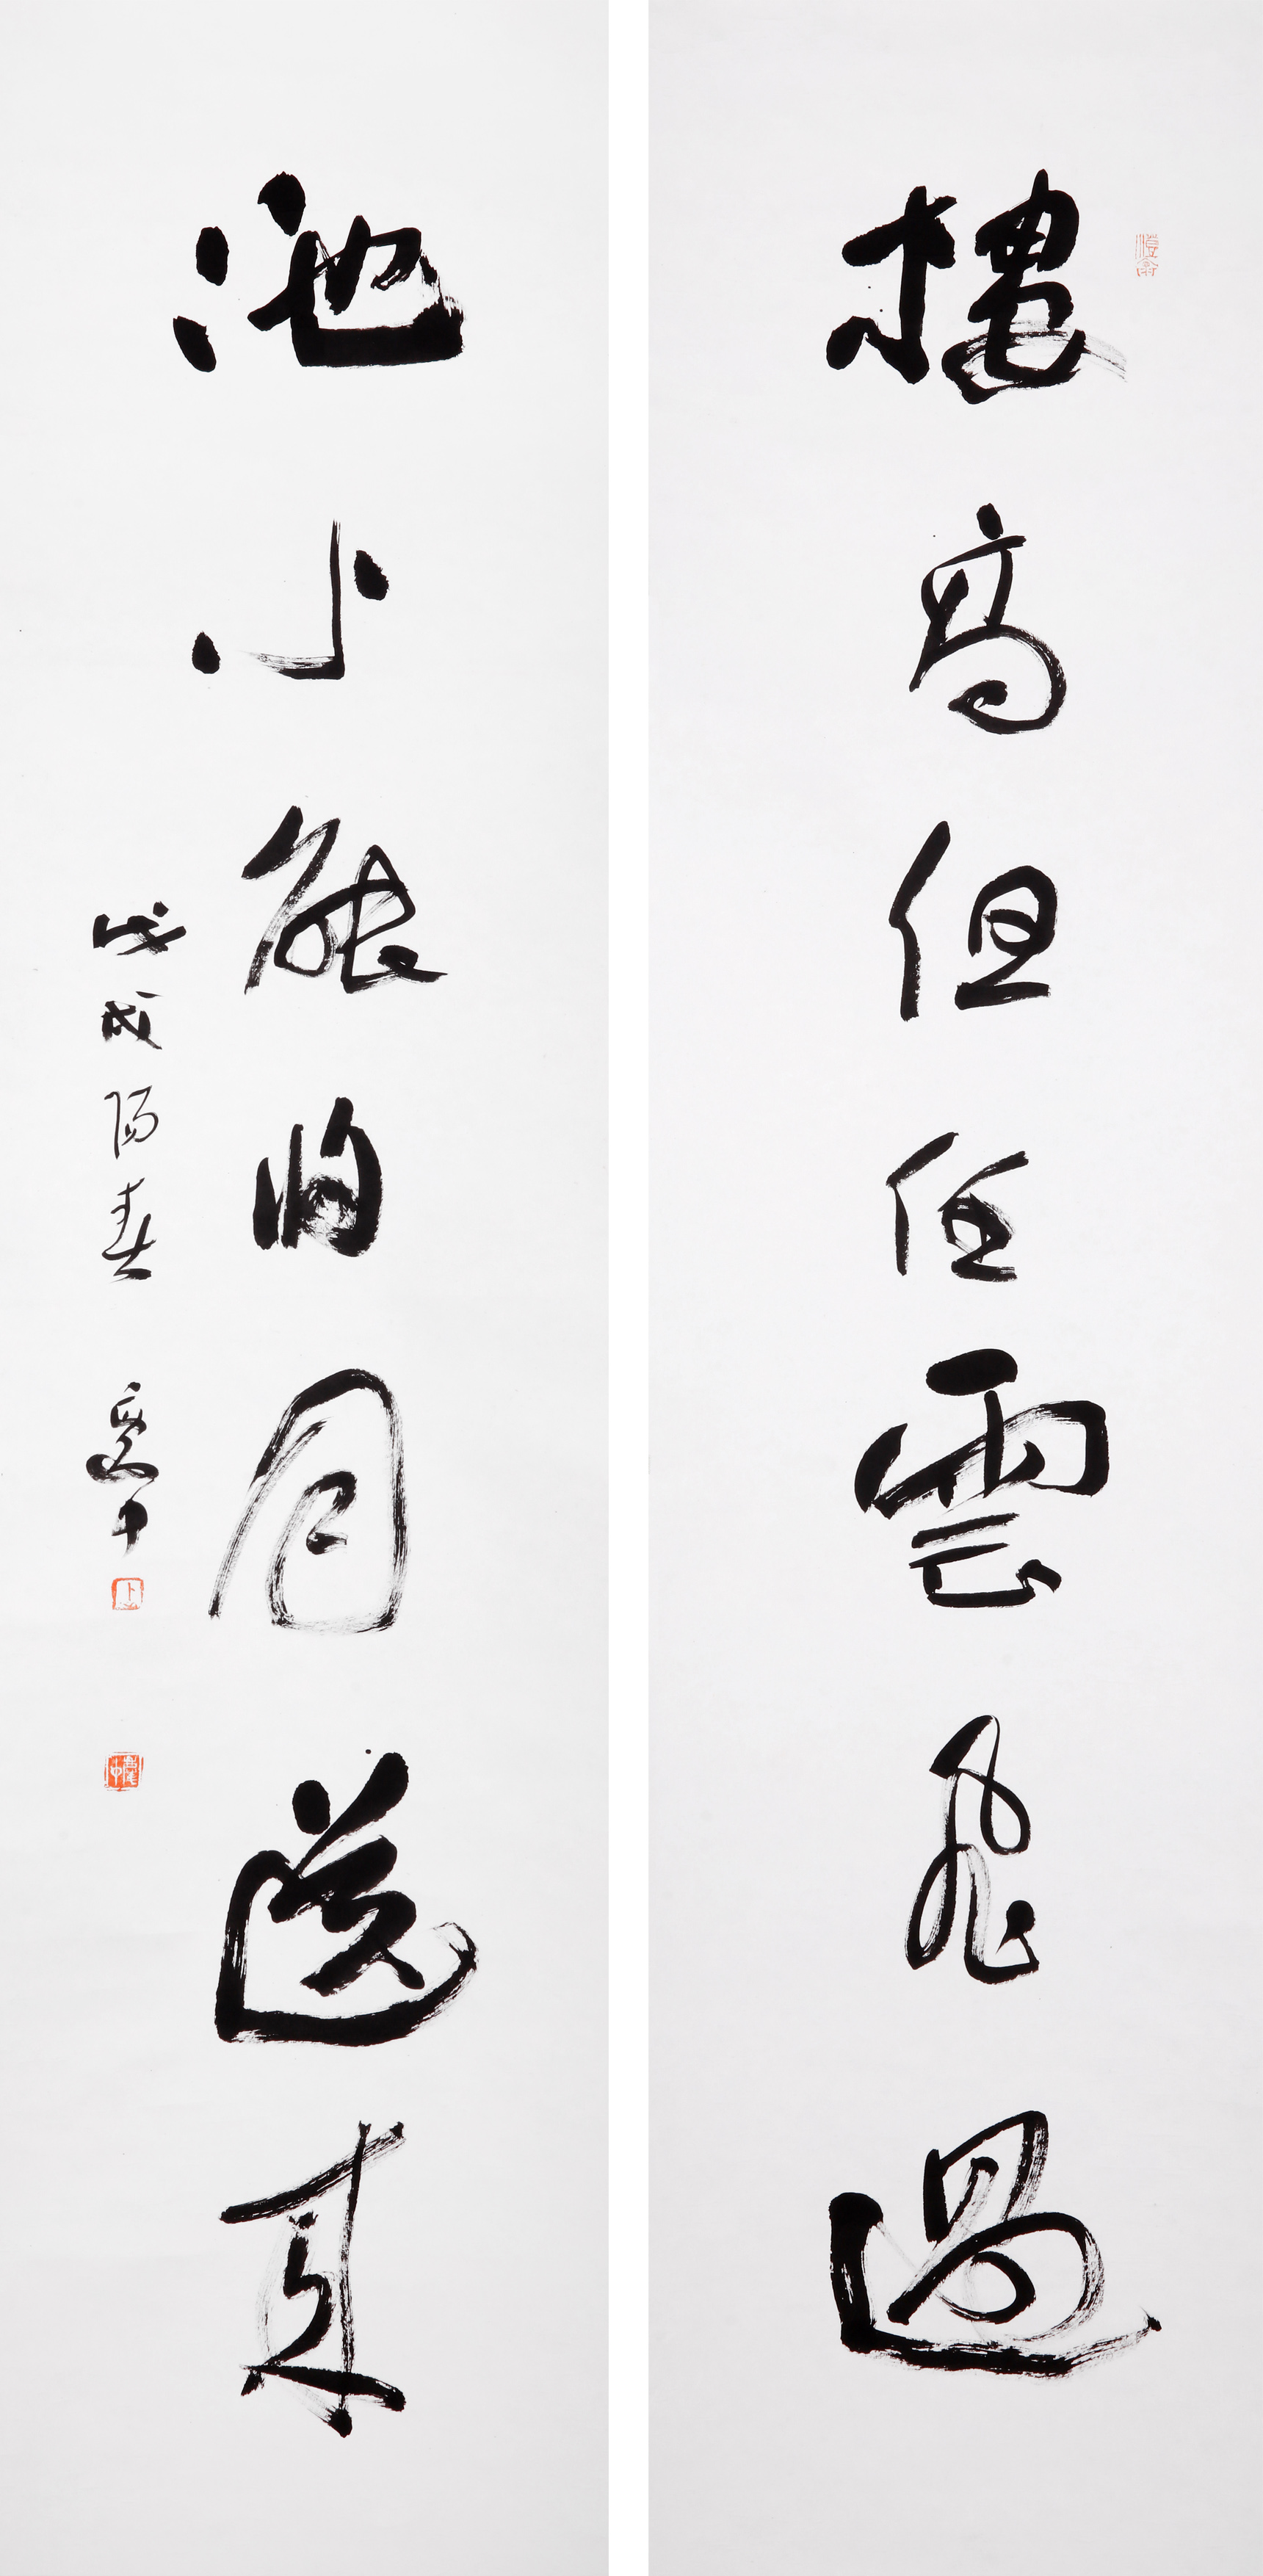 樓高但任雲飛過
池小能將月送來
戊戌陽春